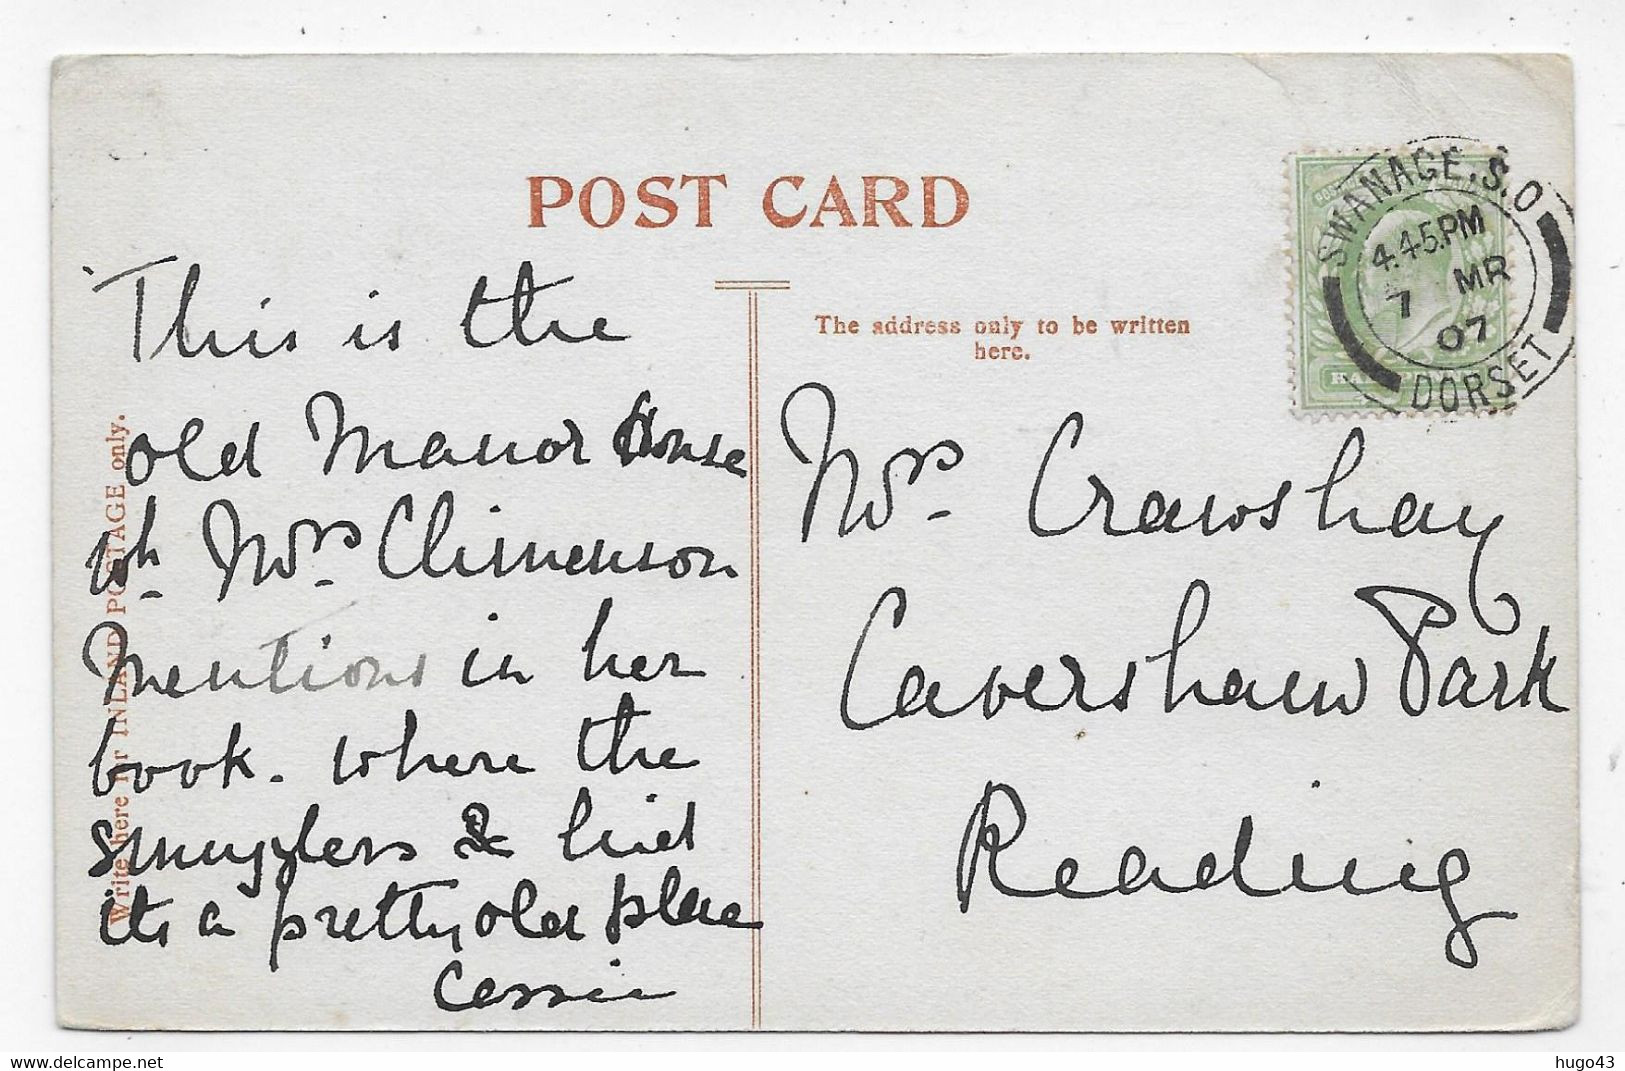 POST CARD
SWANAGE.S.O
4.45PM
7 MR
07
DORSET
The address only to be written
here.
Write here for INLAND POSTAGE only.
This is the
old Manor House
wh. Mrs. Climenson
mentions in her
book. where the
smugglers & hid
its a pretty old place
Cassie
Mrs. Crawshay
Caversham Park
Reading
delcampe.net
hugo43